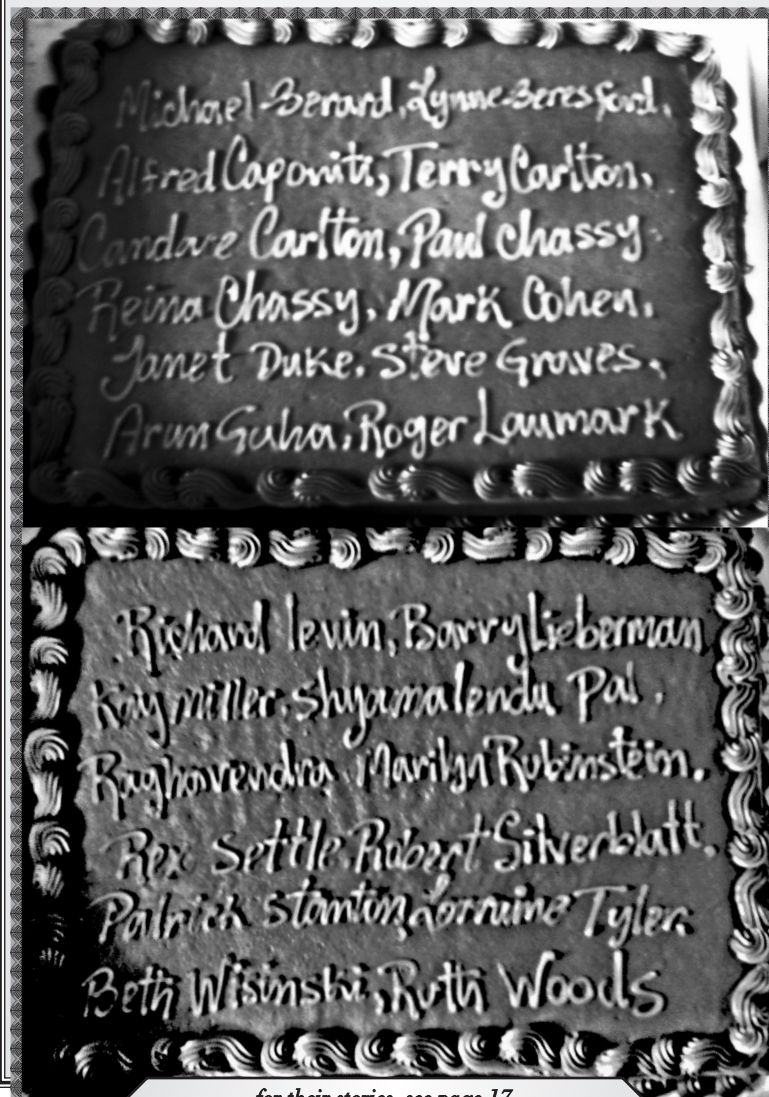 Michael Berard, Lynne Beresford,
Alfred Caponiti, Terry Carlton,
Candace Carlton, Paul Chassy
Reina Chassy, Mark Cohen,
Janet Duke, Steve Groves,
Arun Guha, Roger Laumark
Richard levin, Barry Lieberman
Kay miller, Shyamalendu Pal,
Raghavendra, Marilyn Rubinstein,
Rex Settle, Robert Silverblatt,
Patrick Stanton, Lorraine Tyler,
Beth Wisinski, Ruth Woods
for their stories, see page 17